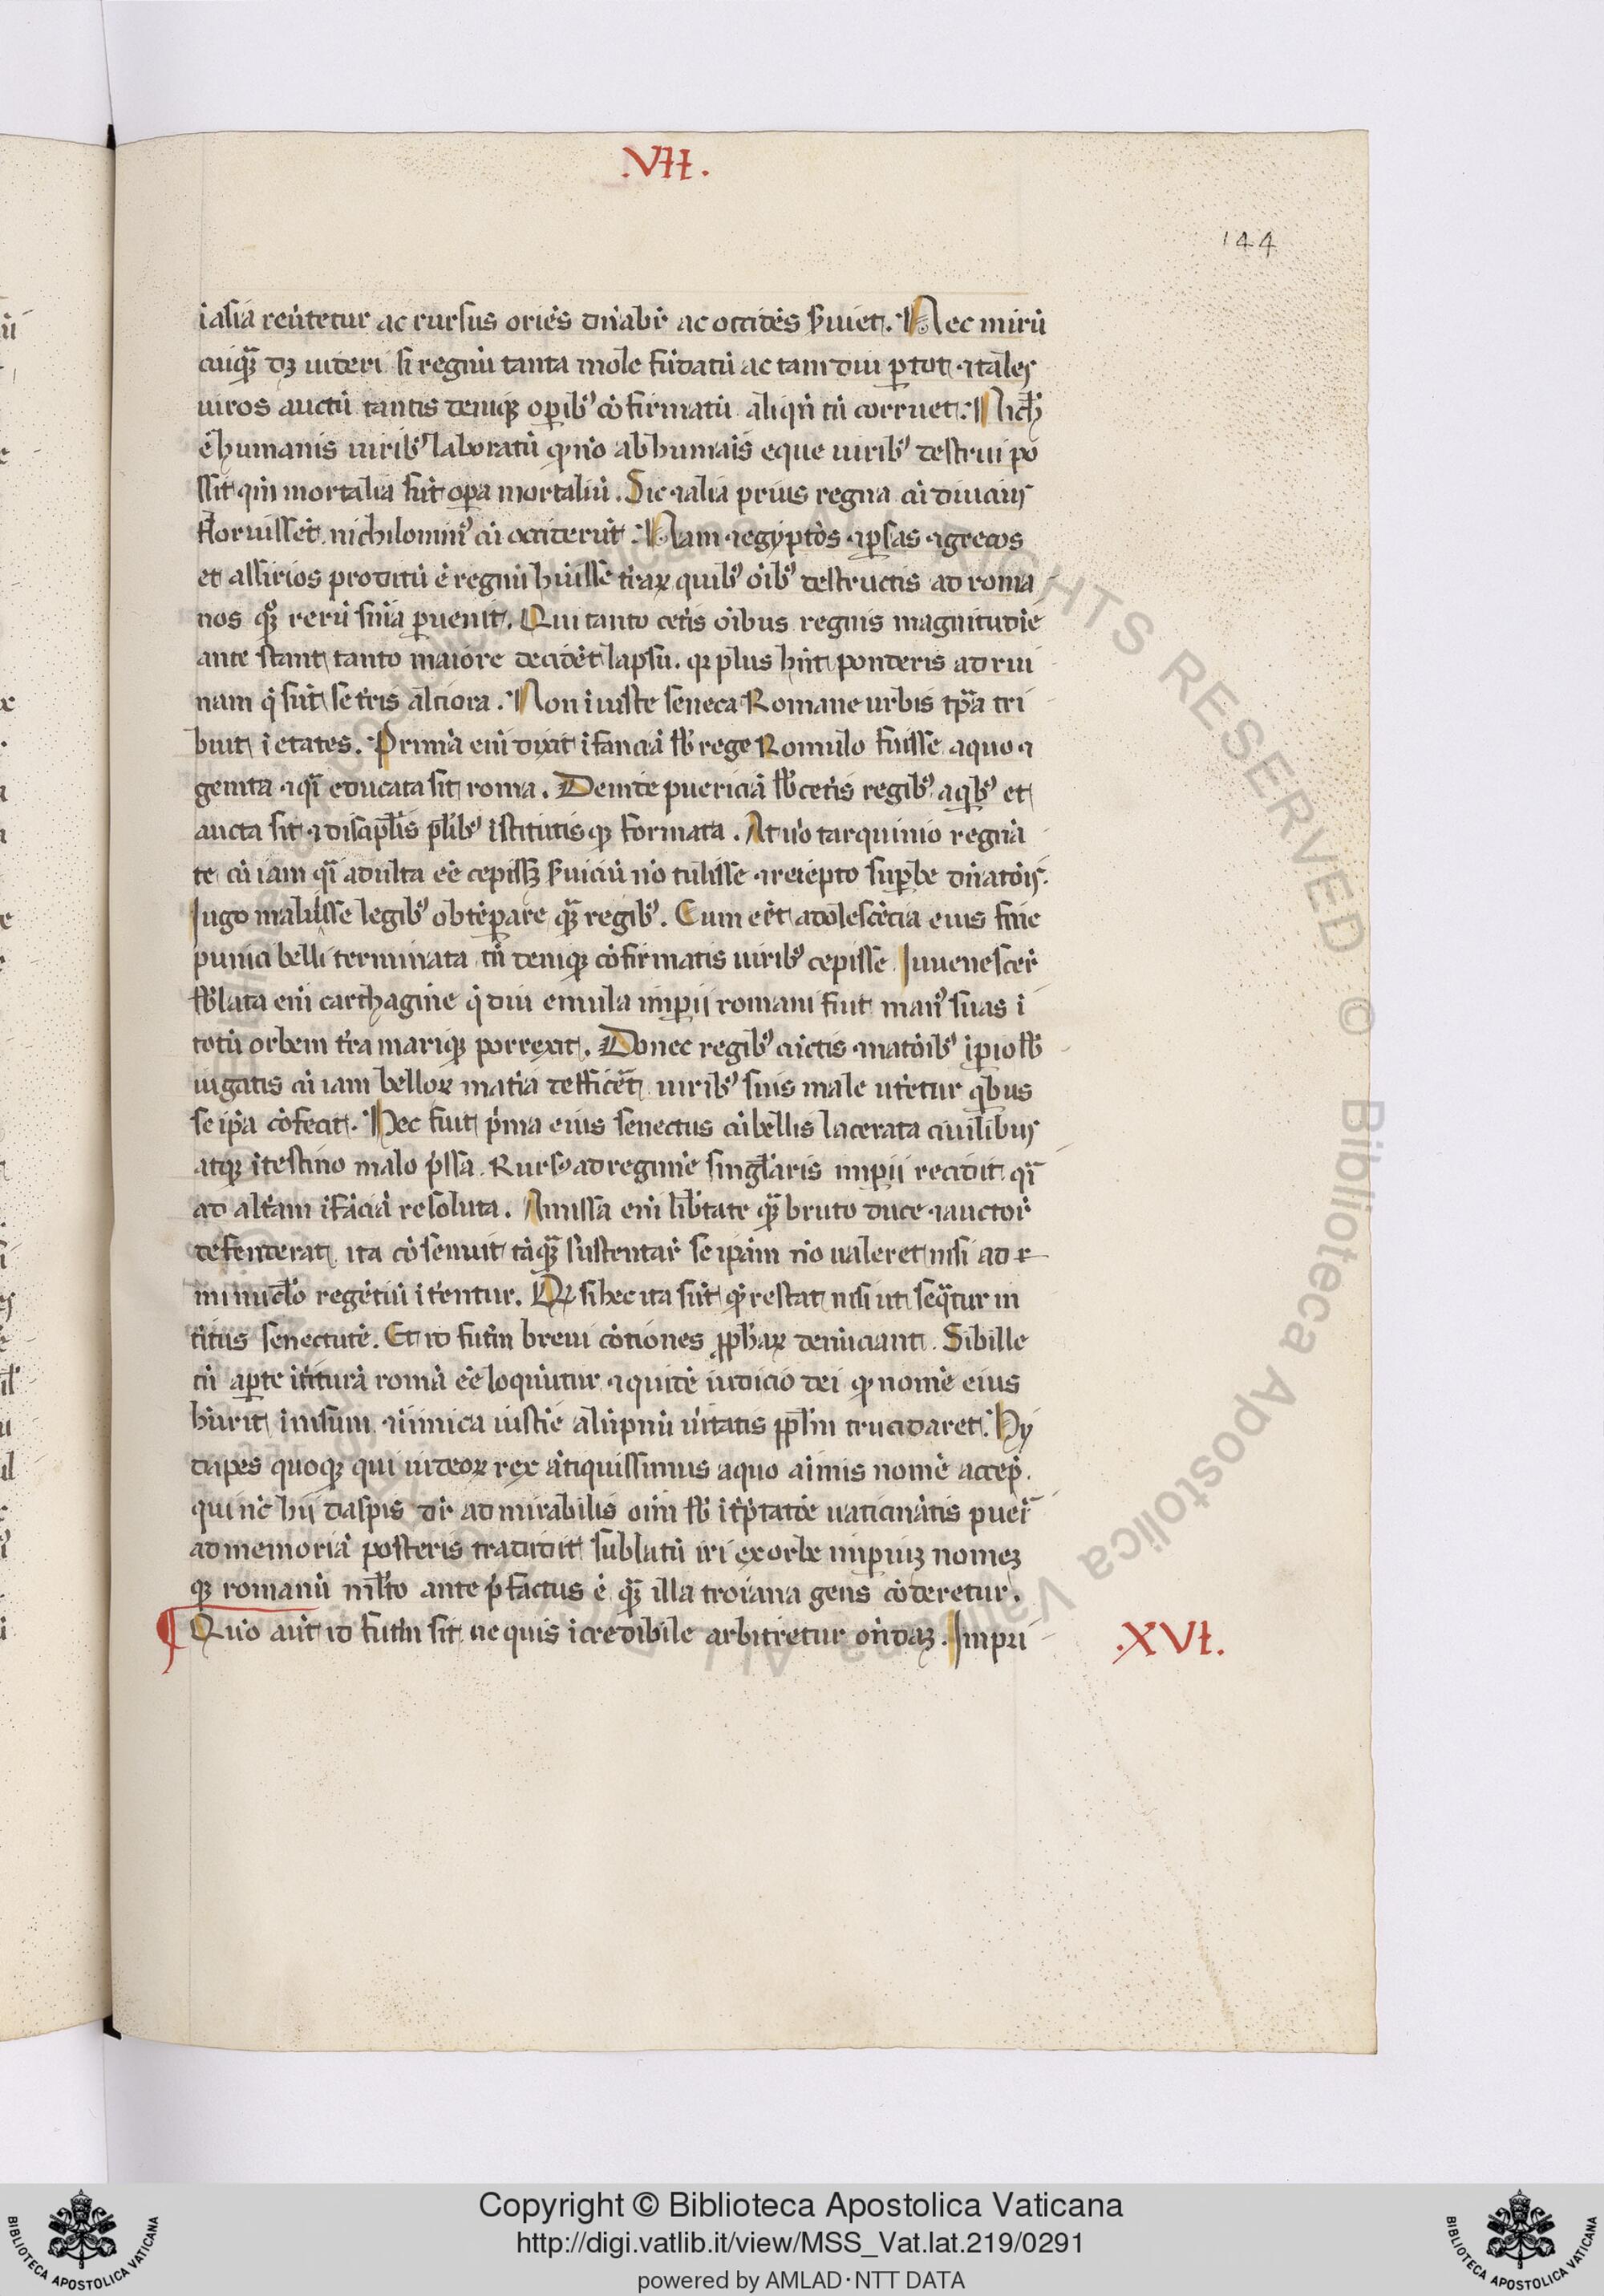 .VII.
144
i asia reu̾tetur ac rursus oriēs dn̄abr̄ ac occidēs ẜuiet. Nec mirū
cuiq̄ dꝫ uideri si regnū tanta mole fūdatū ac tam diu ꝑ tot ⁊ tales
uiros auctū tantis deniqꝫ oꝑibꝰ cōfirmatū aliqn̄ tn̄ corruet. Nich̄
ē humanis uiribꝰ laboratū qͦ nō ab humāis eque uiribꝰ destrui po
ssit qm̄ mortalia sūt oꝑa mortaliū. Sic ⁊ alia prius regna cū diucius
floruissēt nichilominꝰ cū occiderūt. Nam ⁊ egyptōs ⁊ ꝑsas ⁊ grecos
et assirios proditū ē regnū hūisse t̄raꝝ quibꝰ oībꝰ destructis ad roma
nos qͦꝫ rerū sūma ꝑuenit. Qui tanto cet̄is oībus regnis magnitudīe
ante stant tanto maiore decidēt lapsu. qꝛ plus hn̄t ponderis ad rui
nam q̄ sūt se t̄ris alciora. Non īiuste seneca Romane urbis tp̄a tri
buit ī etates. Primā eni dixit īfanciā sb̄ rege Romulo fuisse a quo ⁊
genita ⁊ q̄i educata sit roma. Deinde puericiā sb̄ cet̄is regibꝰ a qͥbꝰ et
aucta sit ⁊ disciplīs pl̄ibꝰ īstitutisqꝫ formata. At uō tarquinio regnā
te cū iam q̄i adulta eē cepissꝫ ẜuiciū nō tulisse ⁊ reiepto suꝑbe dn̄atōis
Iugo maluisse legibꝰ obtēꝑare qͣꝫ regibꝰ. Cum eēt adolescēcia eius fine
punici belli terminata tū deniqꝫ cōfirmatis uiribꝰ cepisse Iuuenescer̄
sb̄lata eni carthagine q̄ diu emula imꝑii romani fuit manꝰ suas ī
totū orbem t̄ra mariqꝫ porrexit. Donec regibꝰ cūctis ⁊ natōibꝰ īꝑio sb̄
iugatis cū iam belloꝝ mat̄ia defficēt uiribꝰ suis male utētur qͥbus
se ip̄a cōfecit. Hec fuit p̄ma eius senectus cū bellis lacerata ciuilibus
atqꝫ ītestino malo p̄ssa. Rursꝰ ad regimē singl̄aris imꝑii recidit q̄i
ad alt̄am īfāciā resoluta. Amissa eni lib̄tate qͣꝫ bruto duce ⁊ auctor̄
defenderat ita cōsenuit tāqͣꝫ sustentar̄ se ip̄am nō ualeret nisi ad
minic̄lo regētiū ītentur. Qꝫ si hec ita sūt qͥd restat nisi ut seqͣtur in
t̄itus senectutē. Et id futm̄ breui cōtiones ꝓph̄aꝝ denūciant. Sibille
tn̄ aꝑte īt̄iturā romā eē loquūtur ⁊ quidē iudicio dei qꝫ nomē eius
hūit īuisum ⁊ īimica iusticie alūpnū ūitatis ppl̄m trucidaret. Hy
dapes quoqꝫ qui uideoꝝ rex ātiquissimus a quo aīmis nomē accep̄.
qui nc̄ hy daspis dr̄ admirabilis oīm sb̄ īt̄p̄tatōe uaticinātis puer̄
ad memoriā posteris tradidit sublatū iri ex orbe imꝑiuꝫ nomeꝫ
qꝫ romanū ml̄to ante p̄factus ē qͣꝫ illa troiana gens cōderetur.
¶ Quō aut id futm̄ sit ne quis īcredibile arbitretur on̄daꝫ. Impri
.XVI.
Copyright © Biblioteca Apostolica Vaticana
http://digi.vatlib.it/view/MSS_Vat.lat.219/0291
powered by AMLAD·NTT DATA
BIBLIOTECA APOSTOLICA VATICANA
BIBLIOTECA APOSTOLICA VATICANA